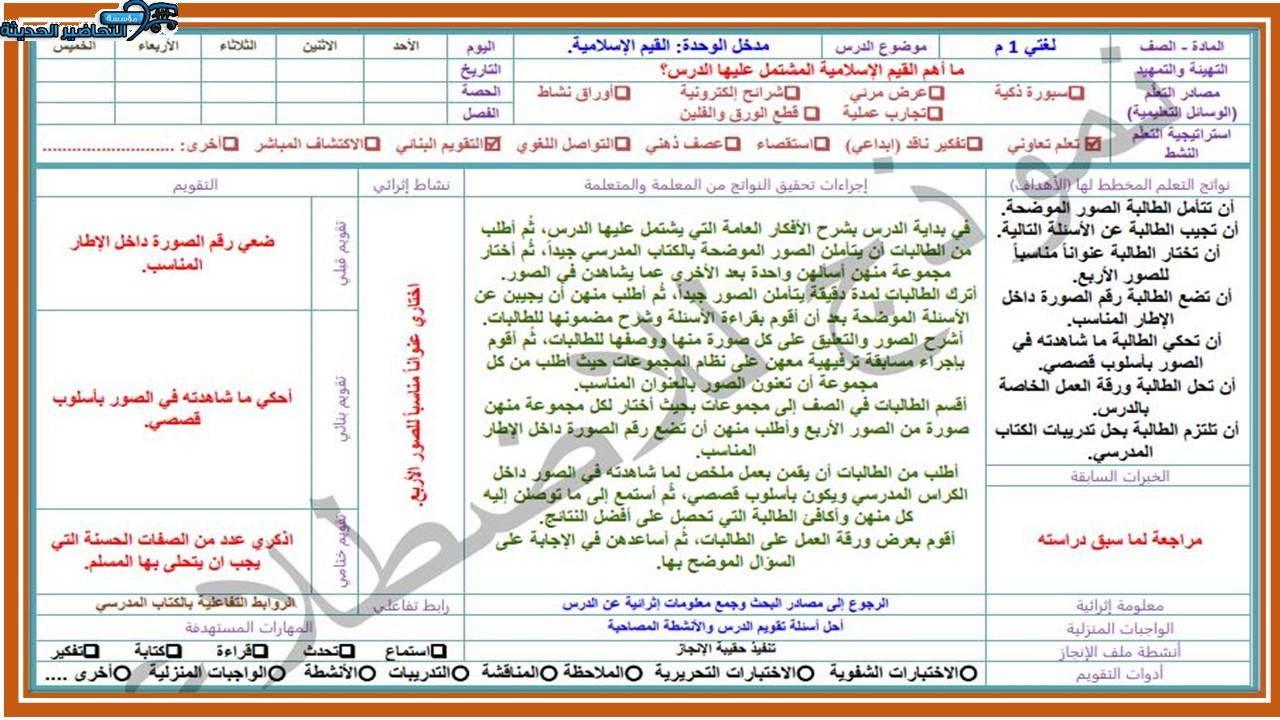 مؤسسة
التحاضير الحديثة
المادة - الصف
لغتي 1 م
موضوع الدرس
مدخل الوحدة: القيم الإسلامية.
اليوم
الأحد
الاثنين
الثلاثاء
الأربعاء
الخميس
التهيئة والتمهيد
ما أهم القيم الإسلامية المشتمل عليها الدرس؟
التاريخ
مصادر التعلم
(الوسائل التعليمية)
☐سبورة ذكية ☐عرض مرئي ☐شرائح إلكترونية ☐أوراق نشاط
☐تجارب عملية ☐ قطع الورق والفلين
الحصة
الفصل
استراتيجية التعلم
النشط
☑ تعلم تعاوني ☐تفكير ناقد (ابداعي) ☐استقصاء ☐عصف ذهني ☐التواصل اللغوي ☑التقويم البنائي ☐الاكتشاف المباشر ☐أخرى: ..........................
نواتج التعلم المخطط لها (الأهداف)
إجراءات تحقيق النواتج من المعلمة والمتعلمة
نشاط إثرائي
التقويم
أن تتأمل الطالبة الصور الموضحة.
أن تجيب الطالبة عن الأسئلة التالية.
أن تختار الطالبة عنواناً مناسباً
للصور الأربع.
أن تضع الطالبة رقم الصورة داخل
الإطار المناسب.
أن تحكي الطالبة ما شاهدته في
الصور بأسلوب قصصي.
أن تحل الطالبة ورقة العمل الخاصة
بالدرس.
أن تلتزم الطالبة بحل تدريبات الكتاب
المدرسي.
الخبرات السابقة
مراجعة لما سبق دراسته
في بداية الدرس بشرح الأفكار العامة التي يشتمل عليها الدرس، ثُم أطلب
من الطالبات أن يتأملن الصور الموضحة بالكتاب المدرسي جيداً، ثُم أختار
مجموعة منهن أسألهن واحدة بعد الأخرى عما يشاهدن في الصور.
أترك الطالبات لمدة دقيقة يتأملن الصور جيداً، ثُم أطلب منهن أن يجيبن عن
الأسئلة الموضحة بعد أن أقوم بقراءة الأسئلة وشرح مضمونها للطالبات.
أشرح الصور والتعليق على كل صورة منها ووصفها للطالبات، ثُم أقوم
بإجراء مسابقة ترفيهية معهن على نظام المجموعات حيث أطلب من كل
مجموعة أن تعنون الصور بالعنوان المناسب.
أقسم الطالبات في الصف إلى مجموعات بحيث أختار لكل مجموعة منهن
صورة من الصور الأربع وأطلب منهن أن تضع رقم الصورة داخل الإطار
المناسب.
أطلب من الطالبات أن يقمن بعمل ملخص لما شاهدته في الصور داخل
الكراس المدرسي ويكون بأسلوب قصصي، ثُم أستمع إلى ما توصلن إليه
كل منهن وأكافئ الطالبة التي تحصل على أفضل النتائج.
أقوم بعرض ورقة العمل على الطالبات، ثُم أساعدهن في الإجابة على
السؤال الموضح بها.
اختاري عنواناً مناسباً للصور الأربع.
تقويم قبلي
ضعي رقم الصورة داخل الإطار
المناسب.
تقويم بنائي
أحكي ما شاهدته في الصور بأسلوب
قصصي.
تقويم ختامي
اذكري عدد من الصفات الحسنة التي
يجب ان يتحلى بها المسلم.
معلومة إثرائية
الرجوع إلى مصادر البحث وجمع معلومات إثرائية عن الدرس
رابط تفاعلي
الروابط التفاعلية بالكتاب المدرسي
الواجبات المنزلية
أحل أسئلة تقويم الدرس والأنشطة المصاحبة
المهارات المستهدفة
أنشطة ملف الإنجاز
تنفيذ حقيبة الإنجاز
☐استماع ☐تحدث ☐قراءة ☐كتابة ☐تفكير
أدوات التقويم
○الاختبارات الشفوية ○الاختبارات التحريرية ○الملاحظة ○المناقشة ○التدريبات ○الأنشطة ○الواجبات المنزلية ○أخرى ....
نموذج للاضطلاع